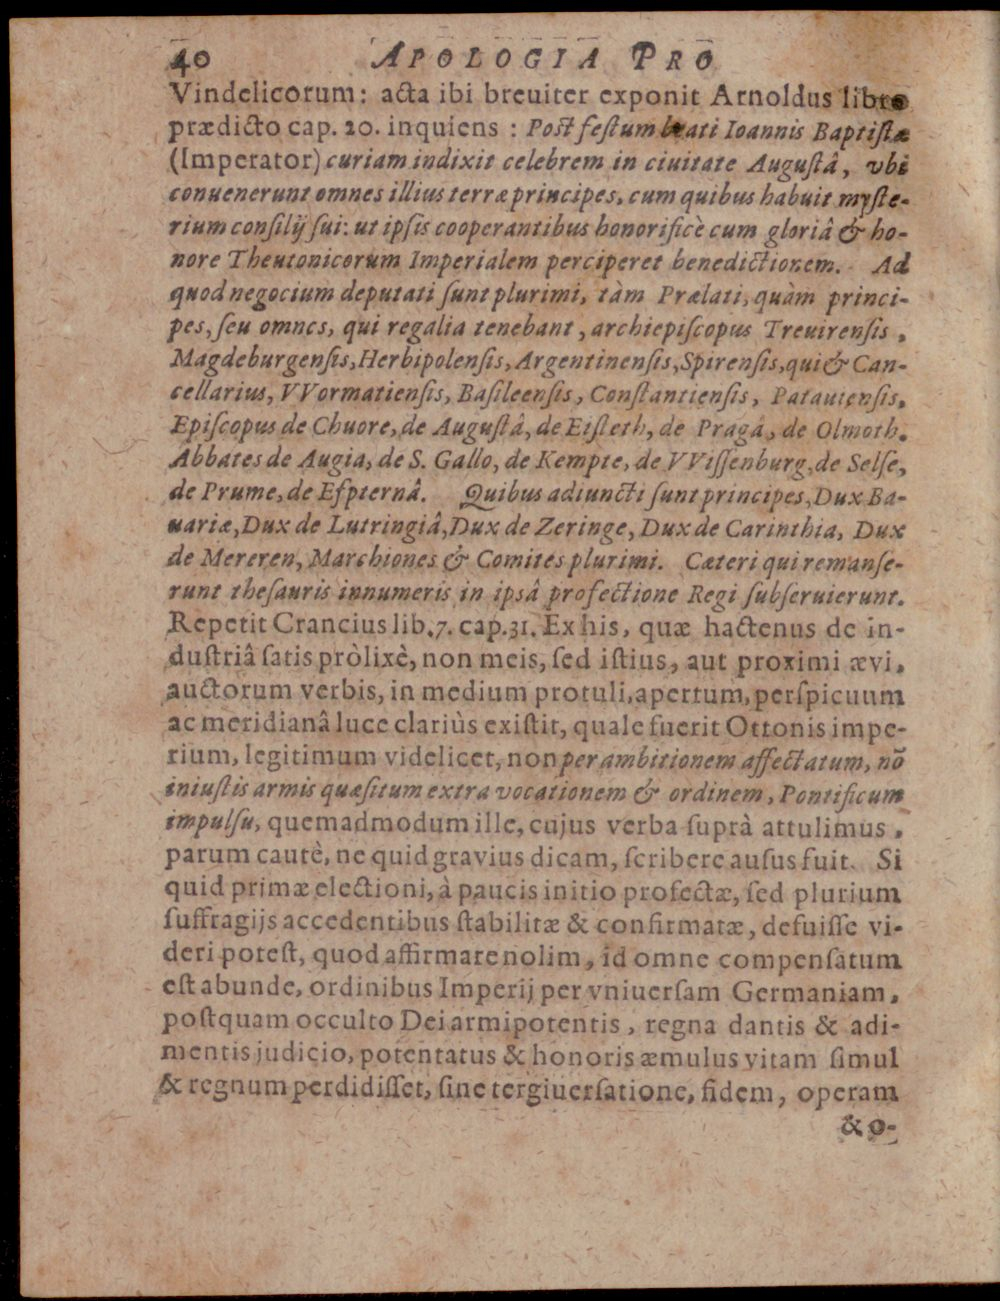 40 APOLOGIA PRO
Vindelicorum: acta ibi breuiter exponit Arnoldus libro
prædicto cap. 20. inquiens : Poſt feſtum beati Ioannis Baptiſtæ
(Imperator) curiam indixit celebrem in ciuitate Auguſtâ, vbi
conuenerunt omnes illius terræ principes, cum quibus habuit myſte-
rium conſilij ſui: ut ipſis cooperantibus honorificè cum gloriâ & ho-
nore Theutonicorum Imperialem perciperet benedictionem. Ad
quod negocium deputati ſunt plurimi, tàm Prælati, quàm princi-
pes, ſeu omnes, qui regalia tenebant, archiepiſcopus Treuirenſis,
Magdeburgenſis, Herbipolenſis, Argentinenſis, Spirenſis, qui & Can-
cellarius, VVormatienſis, Baſileenſis, Conſtantienſis, Patauienſis.
Epiſcopus de Chuore, de Auguſtâ, de Eiſteth, de Pragâ, de Olmoth.
Abbates de Augia, de S. Gallo, de Kempte, de VViſſenburg, de Selſe,
de Prume, de Efpternâ. Quibus adiuncti ſunt principes, Dux Ba-
uariæ, Dux de Lutringiâ, Dux de Zeringe, Dux de Carinthia, Dux
de Mereren, Marchiones & Comites plurimi. Cæteri qui remanſe-
runt theſauris innumeris in ipsâ profectione Regi ſubſeruierunt.
Repetit Crancius lib. 7. cap. 31. Ex his, quæ hactenus de in-
duſtriâ ſatis pròlixè, non meis, ſed iſtius, aut proximi ævi,
auctorum verbis, in medium protuli, apertum, perſpicuum
ac meridianâ luce clariùs exiſtit, quale fuerit Ottonis impe-
rium, legitimum videlicet, non per ambitionem affectatum, nõ
iniuſtis armis quæſitum extra vocationem & ordinem, Pontificum
impulſu, quemadmodum ille, cujus verba ſuprà attulimus,
parum cautè, ne quid gravius dicam, ſcribere auſus fuit. Si
quid primæ electioni, à paucis initio profectæ, ſed plurium
ſuffragijs accedentibus ſtabilitæ & confirmatæ, defuiſſe vi-
deri poteſt, quod affirmare nolim, id omne compenſatum
eſt abunde, ordinibus Imperij per vniuerſam Germaniam,
poſtquam occulto Dei armipotentis, regna dantis & adi-
mentis judicio, potentatus & honoris æmulus vitam ſimul
& regnum perdidiſſet, ſine tergiuerſatione, fidem, operam
& o-